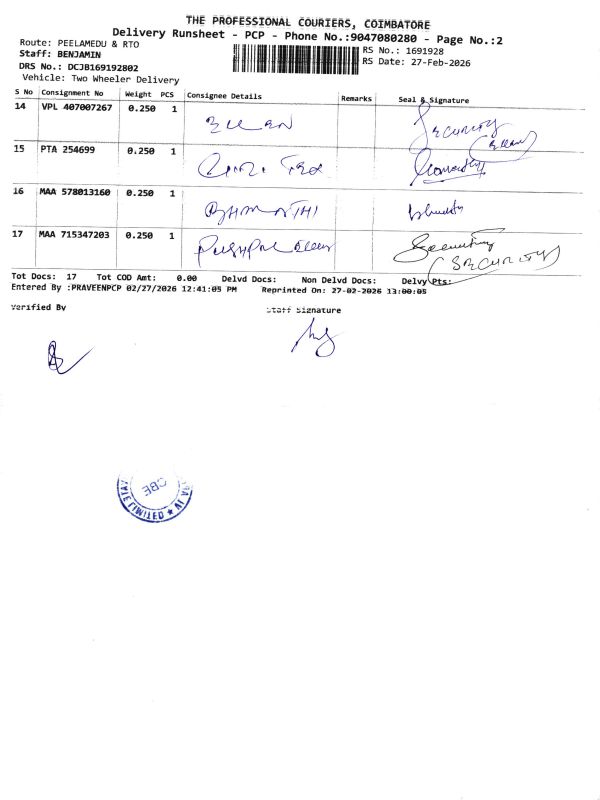 THE PROFESSIONAL COURIERS, COIMBATORE
Delivery Runsheet - PCP - Phone No.:9047080280 - Page No.:2
Route: PEELAMEDU & RTO
Staff: BENJAMIN
DRS No.: DCJB169192802
Vehicle: Two Wheeler Delivery
RS No.: 1691928
RS Date: 27-Feb-2026
S No Consignment No Weight PCS Consignee Details Remarks Seal & Signature
14 VPL 407007267 0.250 1 SECURITY
15 PTA 254699 0.250 1
16 MAA 578013160 0.250 1
17 MAA 715347203 0.250 1 (SECURITY)
Tot Docs: 17 Tot COD Amt: 0.00 Delvd Docs: Non Delvd Docs: Delvy Pts:
Entered By :PRAVEENPCP 02/27/2026 12:41:05 PM Reprinted On: 27-02-2026 13:00:05
Verified By Staff Signature
CBE
LIMITED